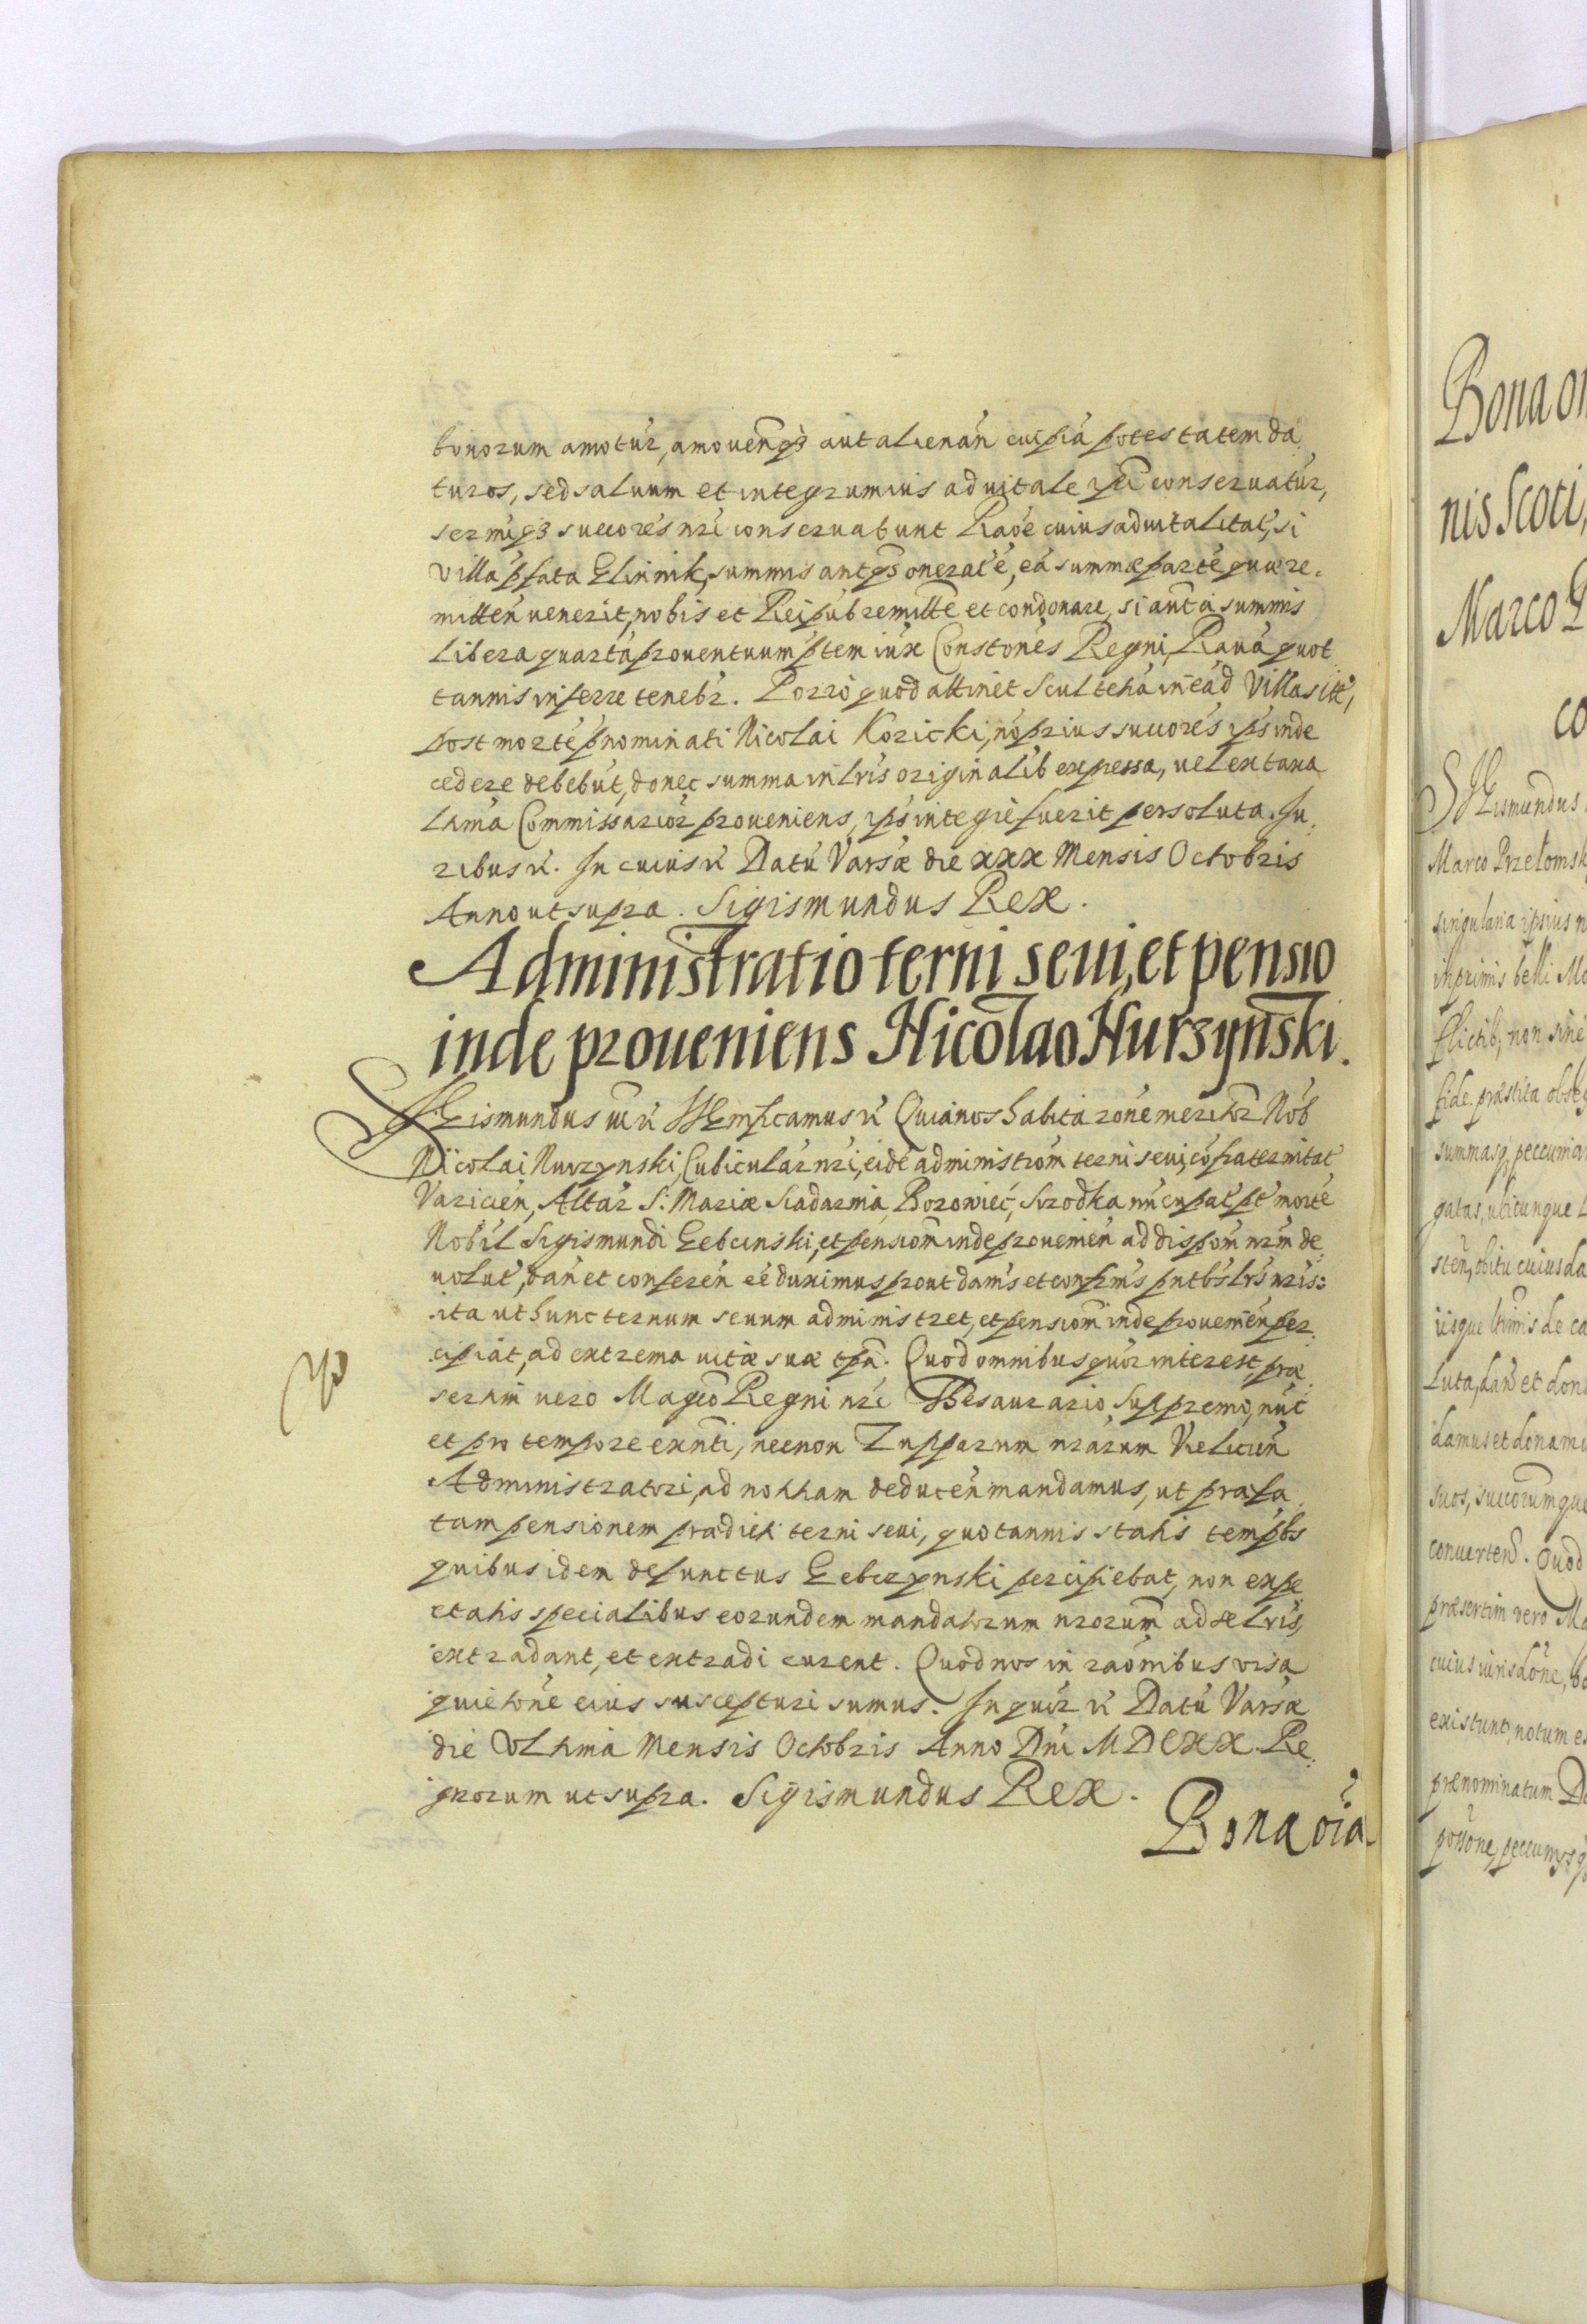 bonorum amotur, amovenq3 aut alienan cuipia potestatem da
turos, sed salvum et integrum ius advitale ipsi conservatur,
sermiq3 succores nri conservabunt Raoe cuius advitalitat, si
villa pfata Glinnik, summis antqs onerat e, ea summæ parte quæ re.
mitten venerit, nobis et Reipub remitte et condonare, si aut a summis
libera quarta proventuum ptem iux Constones Regni, Rava quot
tannis inferre tenebr. Porro quod attinet Scultetia in ead Villa sit,
post morte pnominati Nicolai Kozicki, no prius succores ips inde
cedere debebut, donec summa in lris originalib expressa, vel ex taxa
ltima Commissarior proveniens, ips integre fuerit persoluta. Iu,
ribus &. In cuius & Datu Varsæ die xxx Mensis Octobris
Anno ut supra. Sigismundus Rex.
Administratio terni sevi, et pensio
inde proveniens Nicolao Nurzynski.
SIGismundus III & SIGnificamus & Quia nos habita rone meritor Nob
Nicolai Nurzynski, Cubicular nri, eide administrom terni sevi, cofraternitat
Varicien, Altar S: Mariæ Siadarmia, Borowiec, Srzodka nucupat pt morte
Nobil Sigismundi Gebcinski, et pensiom inde provenien ad dispom nrm de
volut, dan et conferen ee duximus prout dams et confrms pntbs lris nris:
ita ut hunc ternum sevum administret, et pensiom inde provenien per
cipiat, ad extrema vitæ suæ tpa. Quod omnibus quor interest, præ
sertim vero Magco Regni nri Thesaurario Supremo, nuc
et pro tempore exnti, necnon Zupparum nrarum Vielicien
Administratori, ad notiam deducen mandamus, ut præfa
tam pensionem prædict terni sevi, quotannis statis tempbs
quibus idem defunctus Gebczynski percipiebat, non expe
ctatis specialibus eorundem mandatorum nrorum ad se lris,
extradant, et extradi curent. Quod nos in raonibus visa
quietone eius suscepturi sumus. In quor & Datu Varsæ
die Vltima Mensis Octobris Anno Dni MDCXX Re
gnorum ut supra. Sigismundus Rex.
Bona oia
Bona om
nis Scoti,
Marco P
co
SIGismundus
Marco Przetomsk
singularia ipsius n
inprimis belli Mo
flictib, non sine
fide præstita obseq
summasq peccunia
gatas, ubicunque
sten, obitu cuiusda
iisque ltimis de ca
luta, dan et don
damus et donamu
suos, succorumque
converten. Quod
præsertim vero Ma
cuius iurisdone, bo
existunt, notum e
prænominatum D
possone, peccumys q